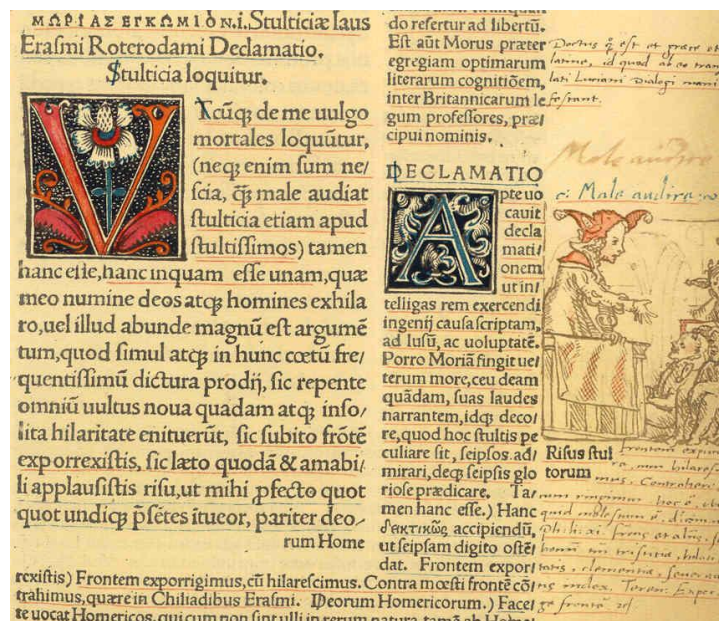 ΜΩΡΙΑΣ ΕΓΚΩΜΙΟΝ.i. Stulticiæ laus
Erasmi Roterodami Declamatio.
Stulticia loquitur.
VTcūq; de me uulgo
mortales loquūtur,
(neq; enim sum ne/
scia, q̄ male audiat
stulticia etiam apud
stultissimos) tamen
hanc esse, hanc inquam esse unam, quæ
meo numine deos atq; homines exhila
ro, uel illud abunde magnū est argumē
tum, quod simul atq; in hunc cœtū fre/
quentissimū dictura prodij, sic repente
omniū uultus noua quadam atq; inso/
lita hilaritate enituerūt, sic subito frōtē
exporrexistis, sic læto quodā & amabi/
li applausistis risu, ut mihi ꝓfecto quot
quot undiq; p̄sētes ītueor, pariter deo/
rum Home
do refertur ad libertū.
Est aūt Morus præter
egregiam optimarum
literarum cognitiōem,
inter Britannicarum le
gum professores, præ/
cipui nominis.
DECLAMATIO
Apte uo
cauit
decla
mati/
onem
ut in/
telligas rem exercendi
ingenij causa scriptam,
ad lusū, ac uoluptatē.
Porro Moriā fingit ue/
terum more, ceu deam
quādam, suas laudes
narrantem, idq; deco/
re, quod hoc stultis pe
culiare sit, seipsos ad/
mirari, deq; seipsis glo
riose prædicare. Ta/
men hanc esse.) Hanc
δεκτικῶς accipiendū,
ut seipsam digito ostē/
dat. Frontem expor/
rexistis) Frontem exporrigimus, cū hilarescimus. Contra mœsti frontē cō/
trahimus, quære in Chiliadibus Erasmi. Deorum Homericorum.) Facel
te uocat Homericos, qui cum non sint ulli in rerum natura, tamē ab Home/
Doctus q est et græce et
latine, id quod ab eo tran
lati Luciani Dialogi mani
festant.
Male audire
c: Male audire
Risus stul
torum